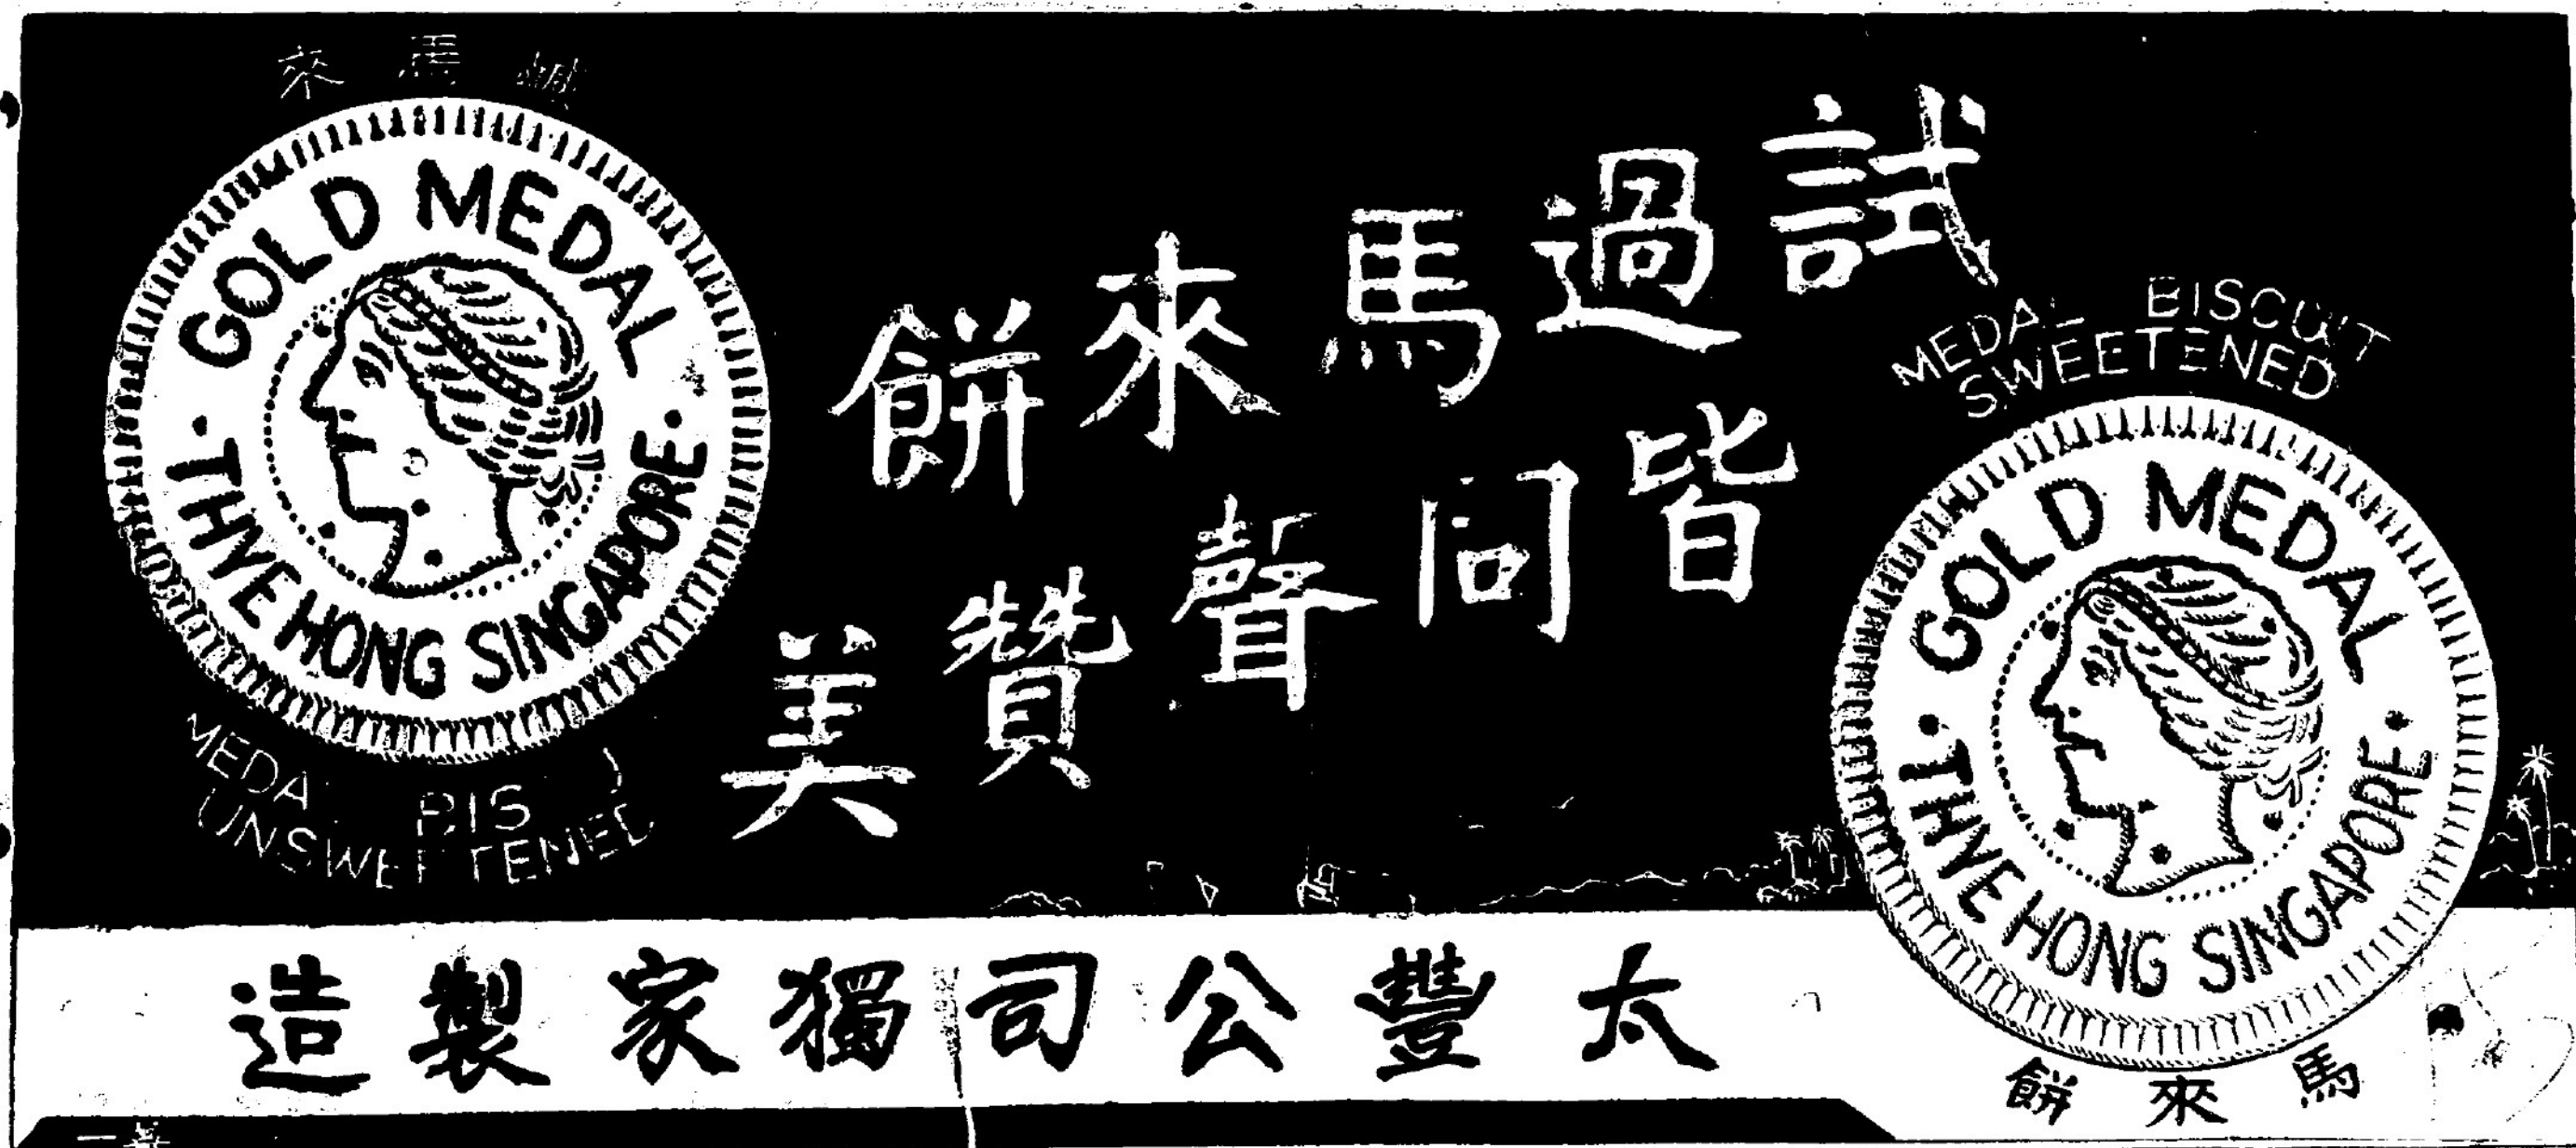 馬來
GOLD MEDAL
THYE HONG SINGAPORE
UNSWEETENED
試過馬來餅
皆同聲贊美
MEDAL BISCUIT
SWEETENED
GOLD MEDAL
THYE HONG SINGAPORE
馬來餅
太豐公司獨家製造